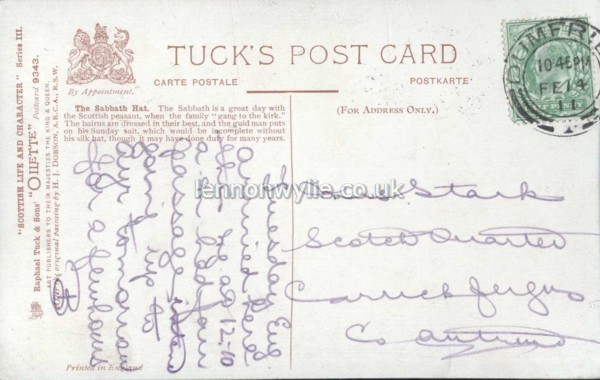 "SCOTTISH LIFE AND CHARACTER" Series III.
Raphael Tuck & Sons' "OILETTE" Postcard 9343.
ART PUBLISHERS TO THEIR MAJESTIES THE KING & QUEEN.
original painting by H. J. DOBSON, A.R.C.A., R.S.W.
By Appointment.
TUCK'S POST CARD
CARTE POSTALE
POSTKARTE
The Sabbath Hat. The Sabbath is a great day with
the Scottish peasant, when the family "gang to the kirk."
The bairns are dressed in their best, and the guid man puts
on his Sunday suit, which would be incomplete without
his silk hat, though it may have done duty for many years.
(FOR ADDRESS ONLY.)
DUMFRIES
FE 14
Thursday Eng
Arrived here
12-10
passage
up to
Ayr tomorrow
for a few hours
B
Stark
Scotch Quarter
Carrickfergus
Co Antrim
Printed in England
lennonwylie.co.uk